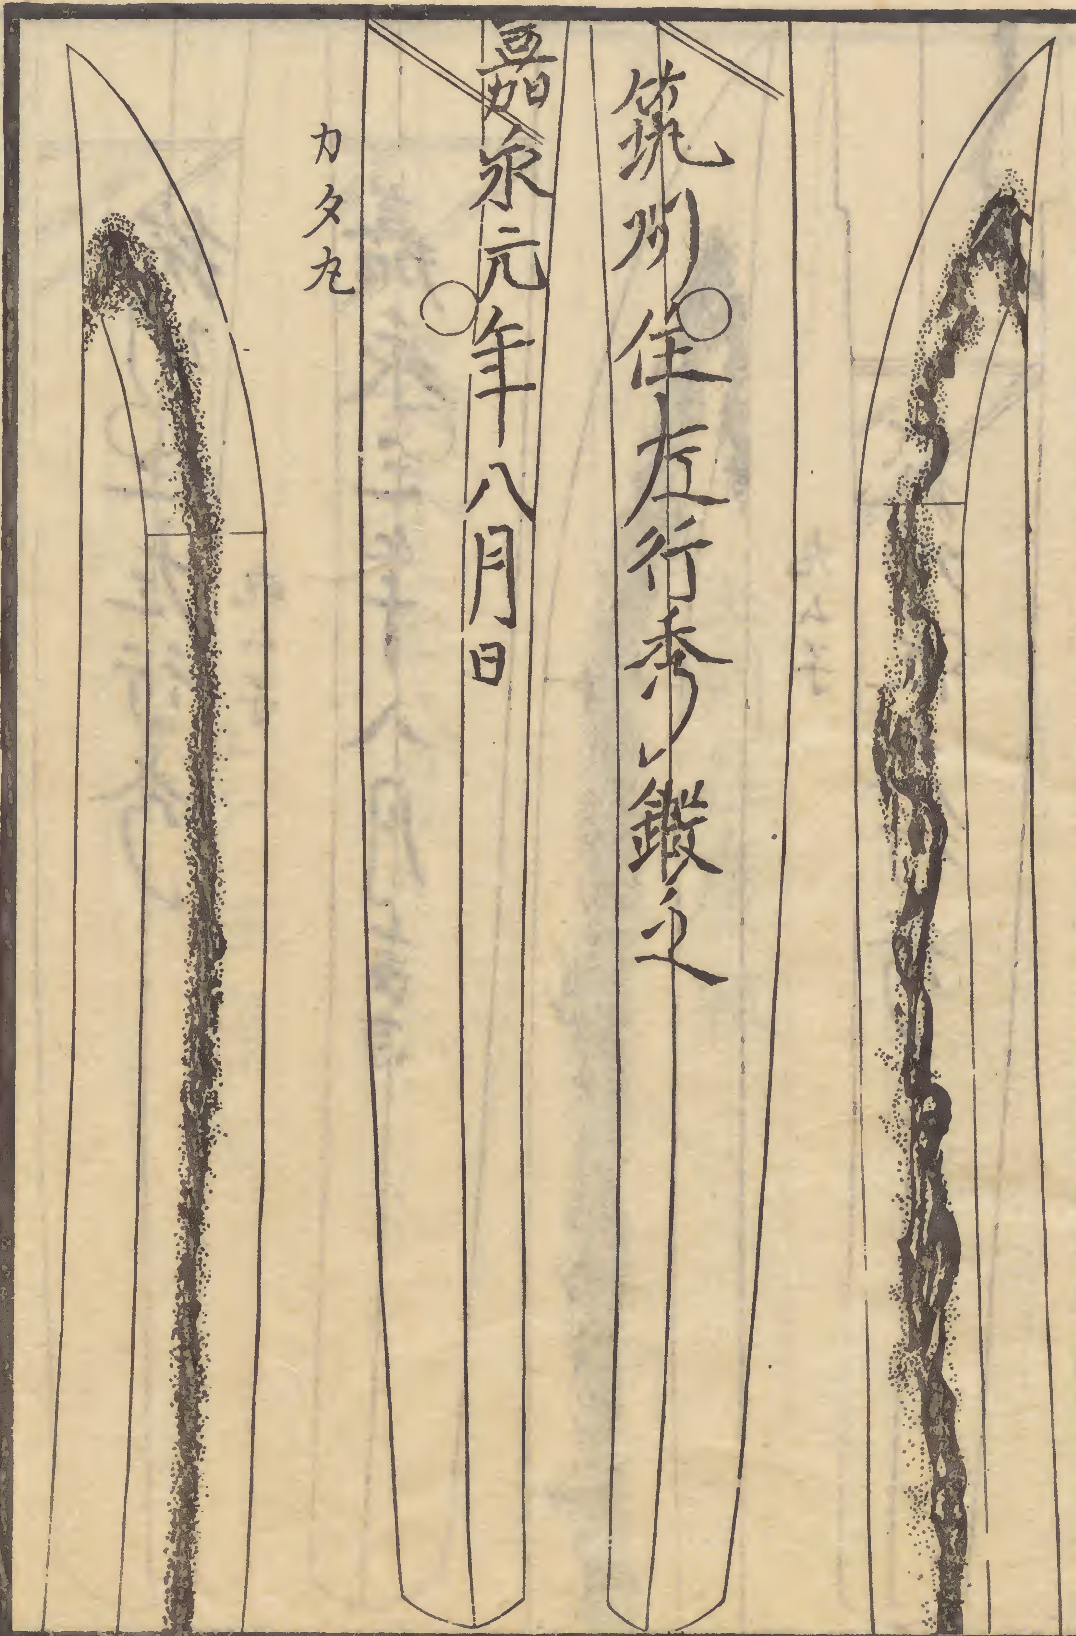 筑州住左行秀鍛之
嘉永元年八月日
カタ九